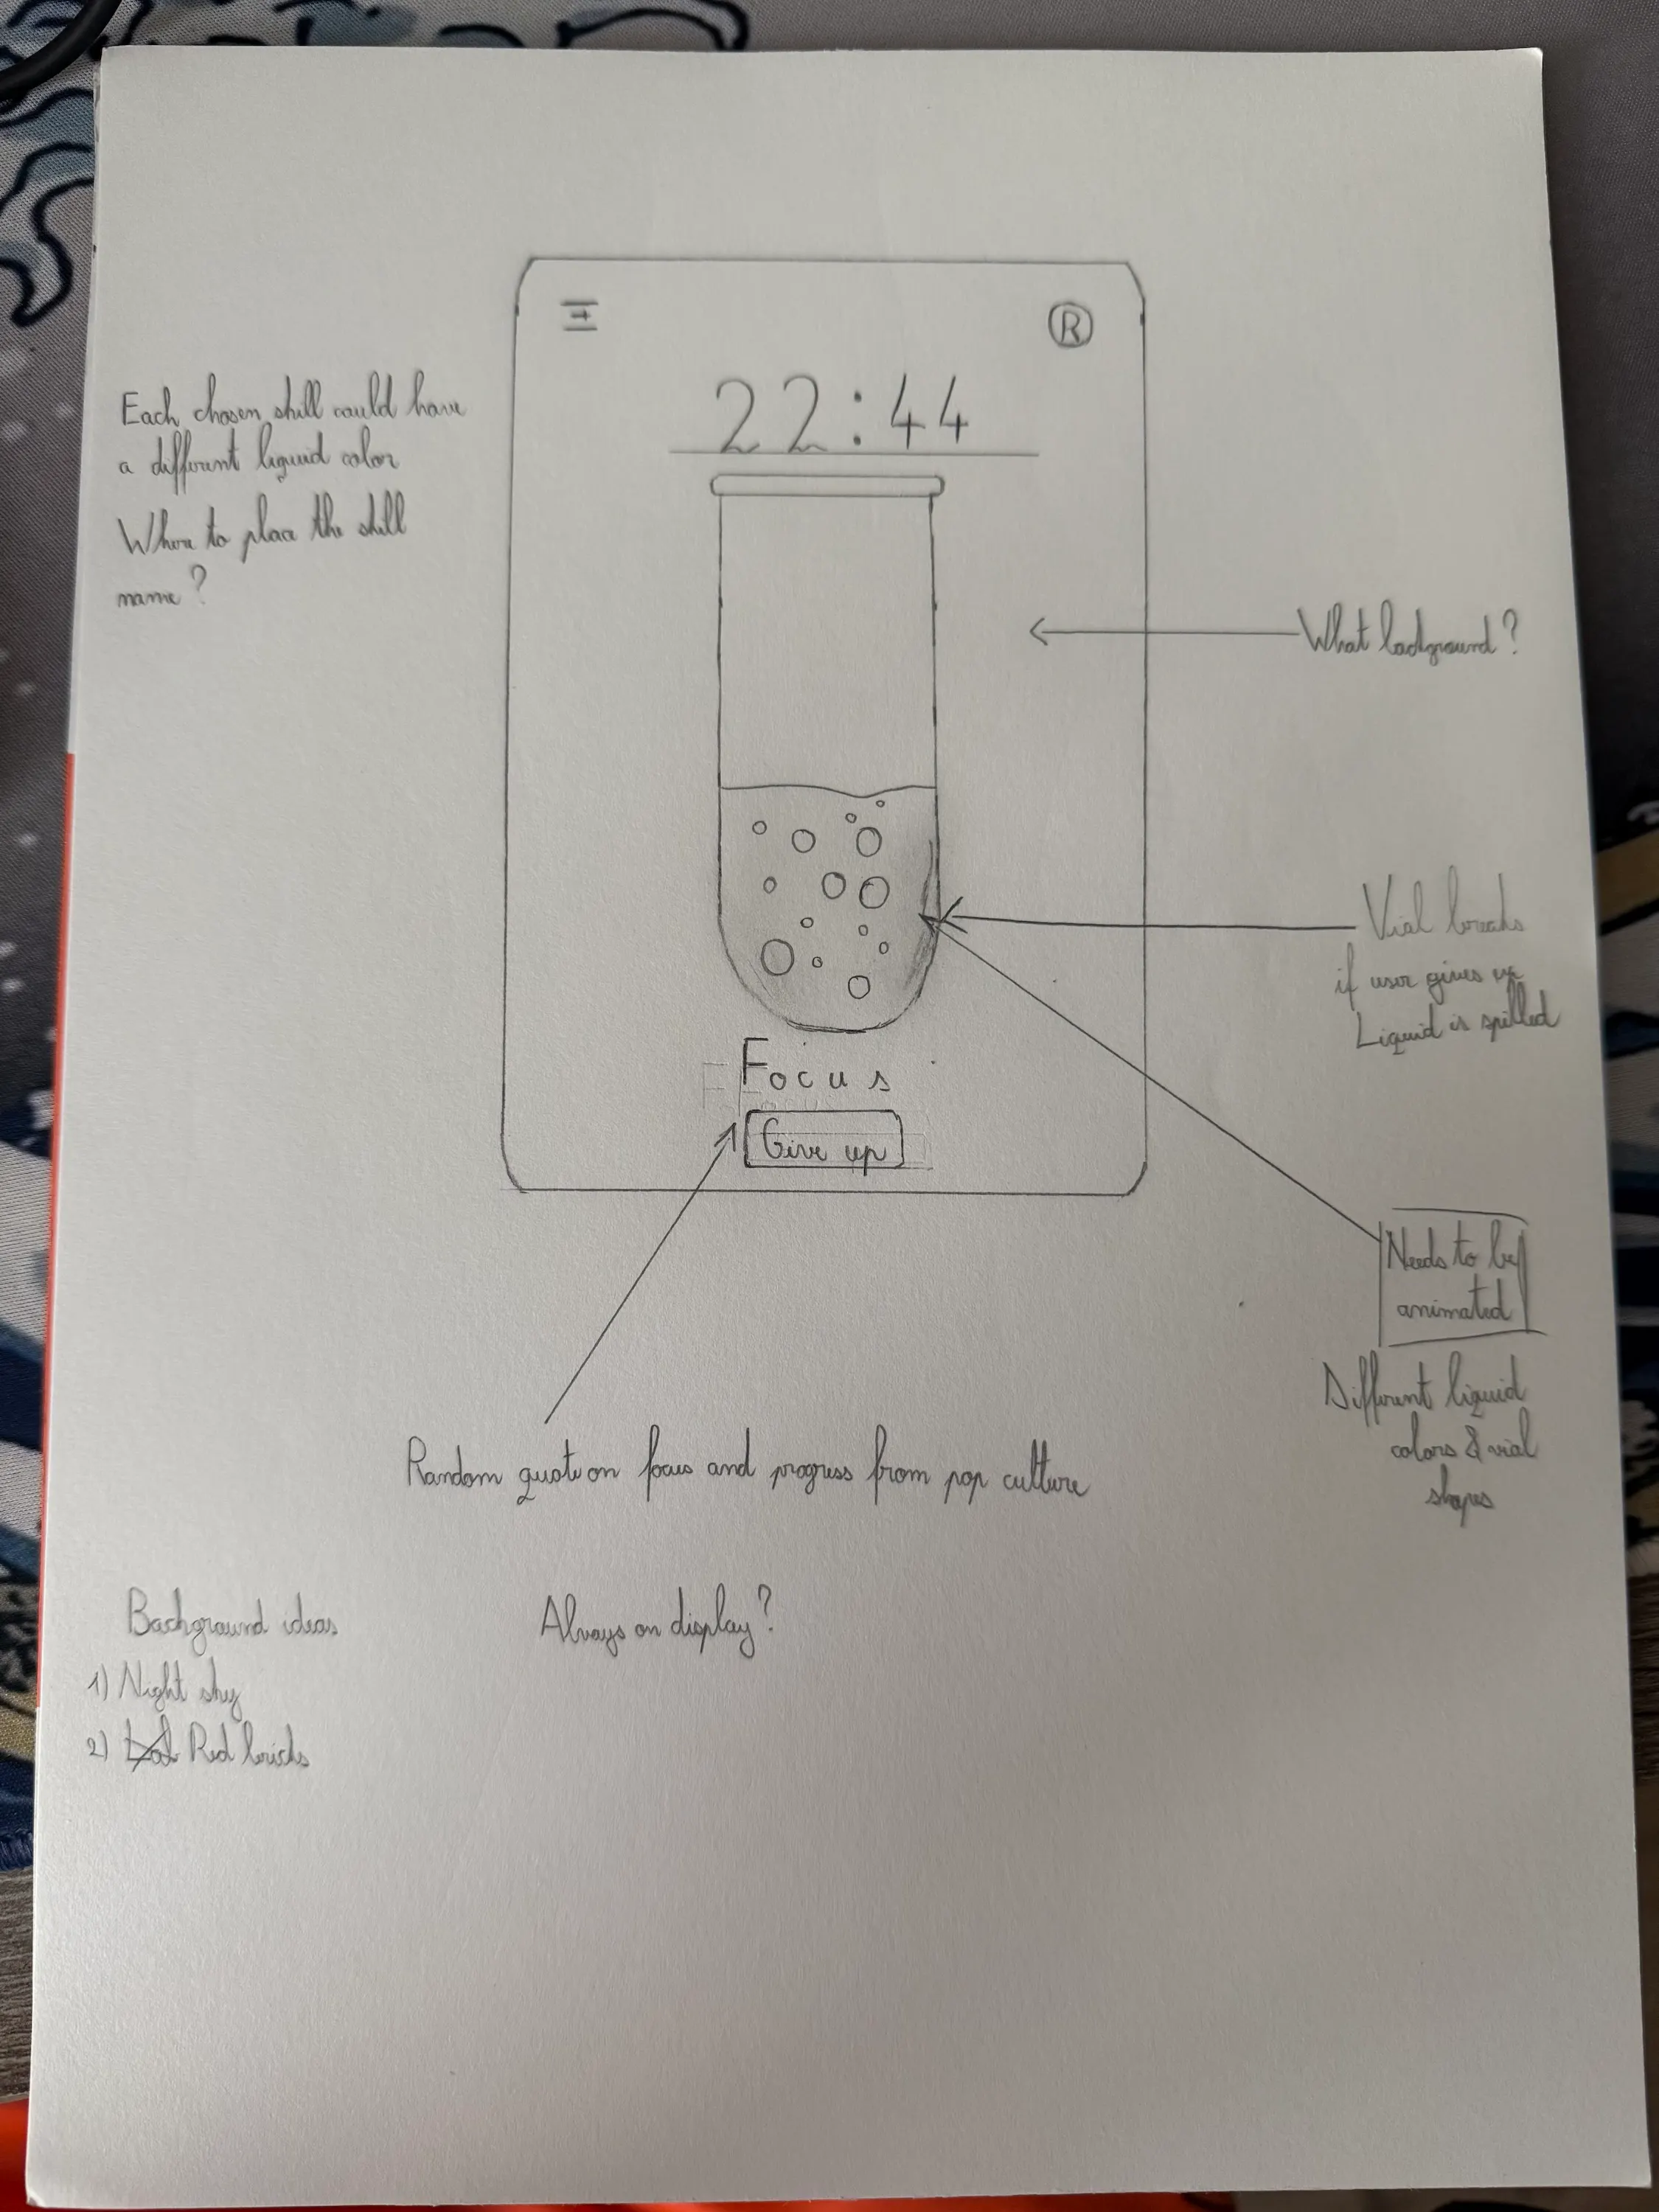 R
22:44
Each chosen skill could have
a different liquid color
Where to place the skill
name?
What background?
Vial breaks
if user gives up
Liquid is spilled
Focus
Give up
Needs to be
animated
Different liquid
colors & vial
shapes
Random quote on focus and progress from pop culture
Background ideas
Always on display?
1) Night sky
2) Red bricks